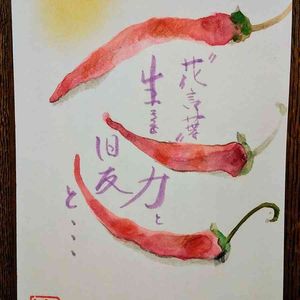 "花言葉"
生きる力と
旧友
と・・・